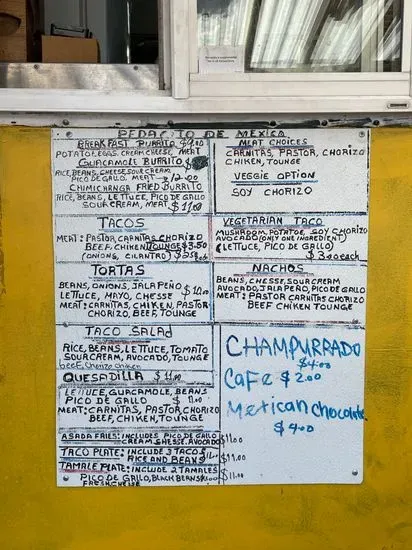 PEDACITO DE MEXICO
BREAKFAST BURRITO $9.00
POTATO, EGGS, CREAM CHEESE, MEAT
GUACAMOLE BURRITO
RICE, BEANS, CHEESE, SOUR CREAM,
PICO DE GALLO, MEAT 12.00
CHIMICHANGA FRIED BURRITO
RICE, BEANS, LETTUCE, PICO DE GALLO
SOUR CREAM, MEAT $11.00
MEAT CHOICES
CARNITAS, PASTOR, CHORIZO
CHIKEN, TOUNGE
VEGGIE OPTION
SOY CHORIZO
TACOS
MEAT: PASTOR, CARNITAS, CHORIZO
BEEF, CHIKEN, TOUNGE $3.50
(ONIONS, CILANTRO)
VEGETARIAN TACO
MUSHROOM, POTATOE, SOY CHORIZO
AVOCADO (ONLY ONE INGREDIENT)
(LETTUCE, PICO DE GALLO)
$3.00 each
TORTAS
BEANS, ONIONS, JALAPEÑO
LETTUCE, MAYO, CHESSE
MEAT: CARNITAS, CHIKEN, PASTOR
CHORIZO, BEEF, TOUNGE
NACHOS
BEANS, CHESSE, SOUR CREAM
AVOCADO, JALAPEÑO, PICO DE GALLO
MEAT: PASTOR CARNITAS CHORIZO
BEEF CHIKEN TOUNGE
TACO SALAD
RICE, BEANS, LETTUCE, TOMATO
SOUR CREAM, AVOCADO, TOUNGE
beef, Chorizo chiken
QUESADILLA $11.00
LETTUCE, GUACAMOLE, BEANS
PICO DE GALLO $11.00
MEAT: CARNITAS, PASTOR, CHORIZO
BEEF, CHIKEN, TOUNGE
ASADA FRIES: INCLUDES PICO DE GALLO $11.00
CREAM, CHESSE, AVOCADO
TACO PLATE: INCLUDE 3 TACOS
RICE AND BEANS $11.00
TAMALE PLATE: INCLUDE 2 TAMALES
PICO DE GALLO, BLACK BEANS $11.00
FRESH CHESSE
CHAMPURRADO
$4.00
CaFe $2.00
Mexican chocolate
$4.00